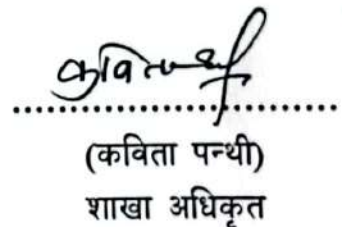 कविता
....................................
(कविता पन्थी)
शाखा अधिकृत